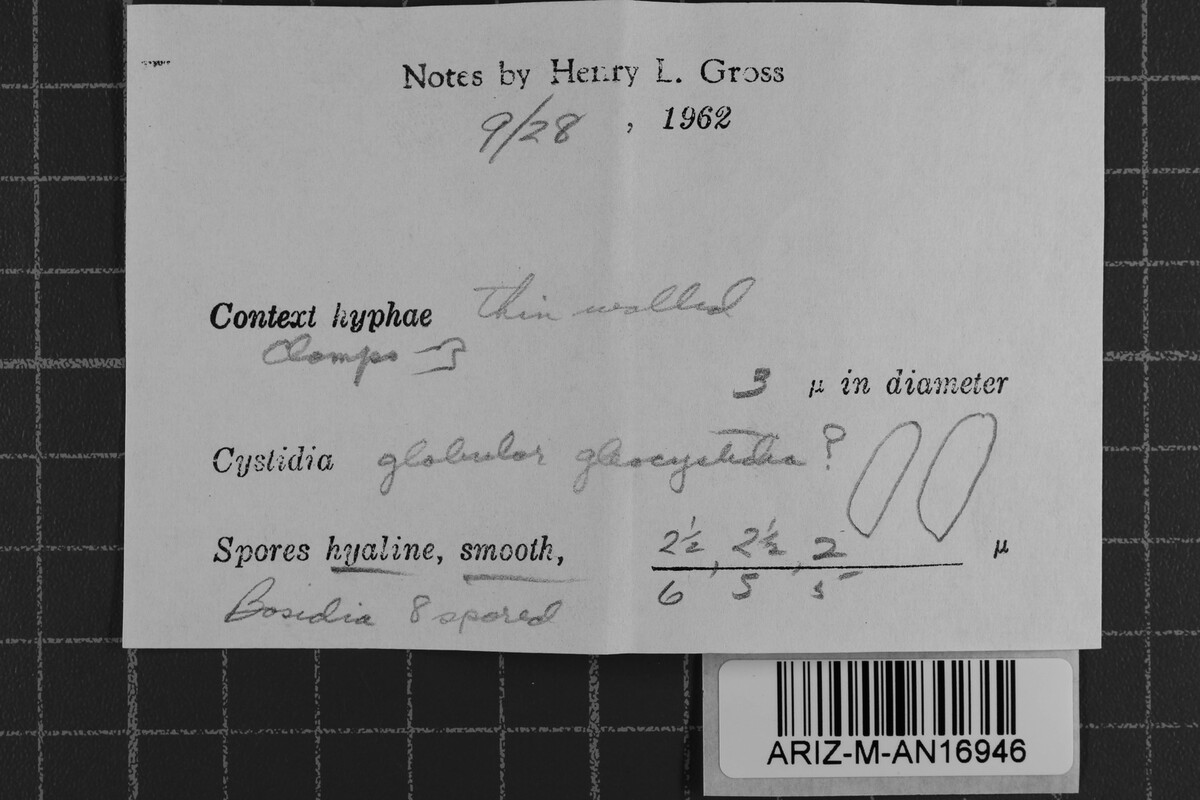 Notes by Henry L. Gross
9/28 , 1962
Context hyphae thin walled
Clamps
3 µ in diameter
Cystidia globular gleocystidia?
Spores hyaline, smooth, 2½, 2½, 2 µ
6 5 5
Basidia 8 spored
ARIZ-M-AN16946